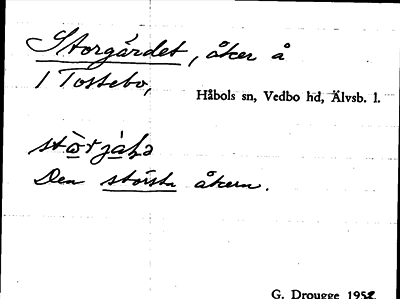 Storgärdet, åker å
1 Tossebo,
Håbols sn, Vedbo hd, Älvsb. l.
Den största åkern.
G. Drougge 1952